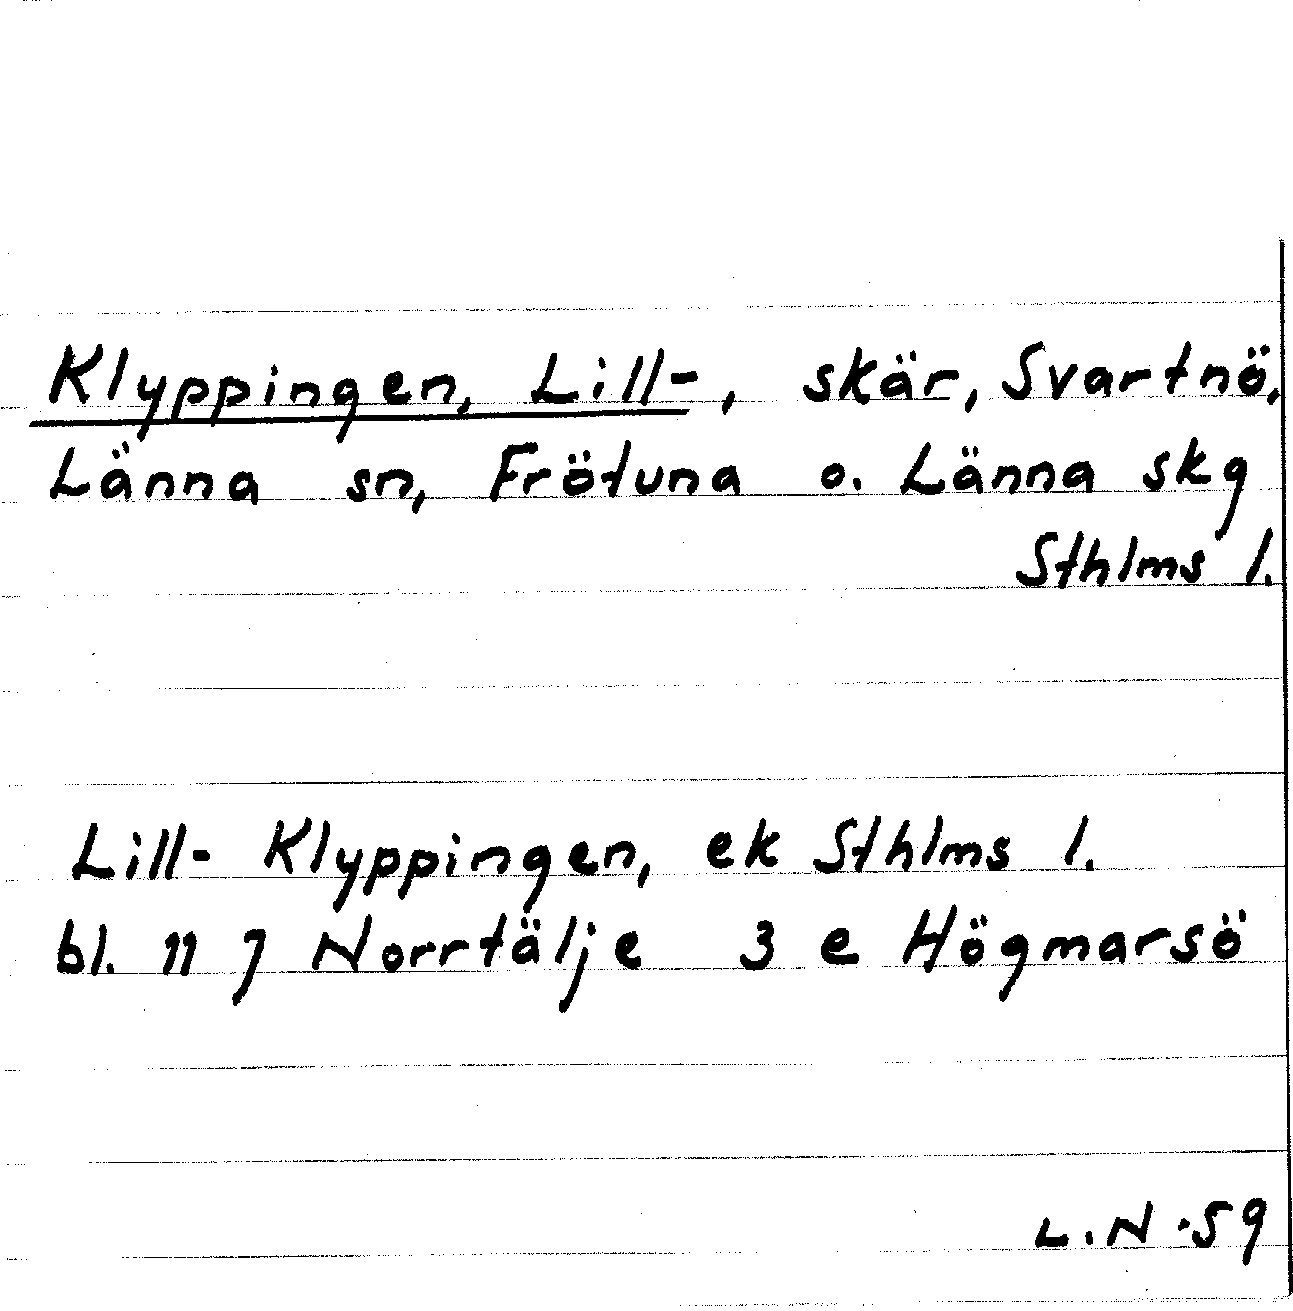 Klyppingen, Lill-, skär, Svartnö,
Länna sn, Frötuna o. Länna skg
Sthlms l.
Lill- Klyppingen, ek Sthlms l.
bl. 11 J Norrtälje 3 e Högmarsö
L.N.59